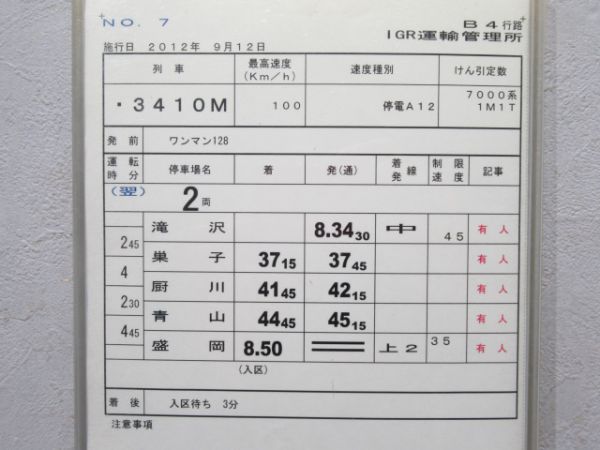 NO. 7
B4行路
施行日 2012年 9月12日
IGR運輸管理所
列車 最高速度(Km/h) 速度種別 けん引定数
・3410M 100 停電A12 7000系 1M1T
発前 ワンマン128
運転時分 停車場名 着 発(通) 着発線 制限速度 記事
(翌) 2両
滝沢 8.34 30 中 45 有人
2 45
巣子 37 15 37 45 有人
4
厨川 41 45 42 15 有人
2 30
青山 44 45 45 15 有人
4 45
盛岡 8.50 上2 35 有人
(入区)
着後 入区待ち 3分
注意事項